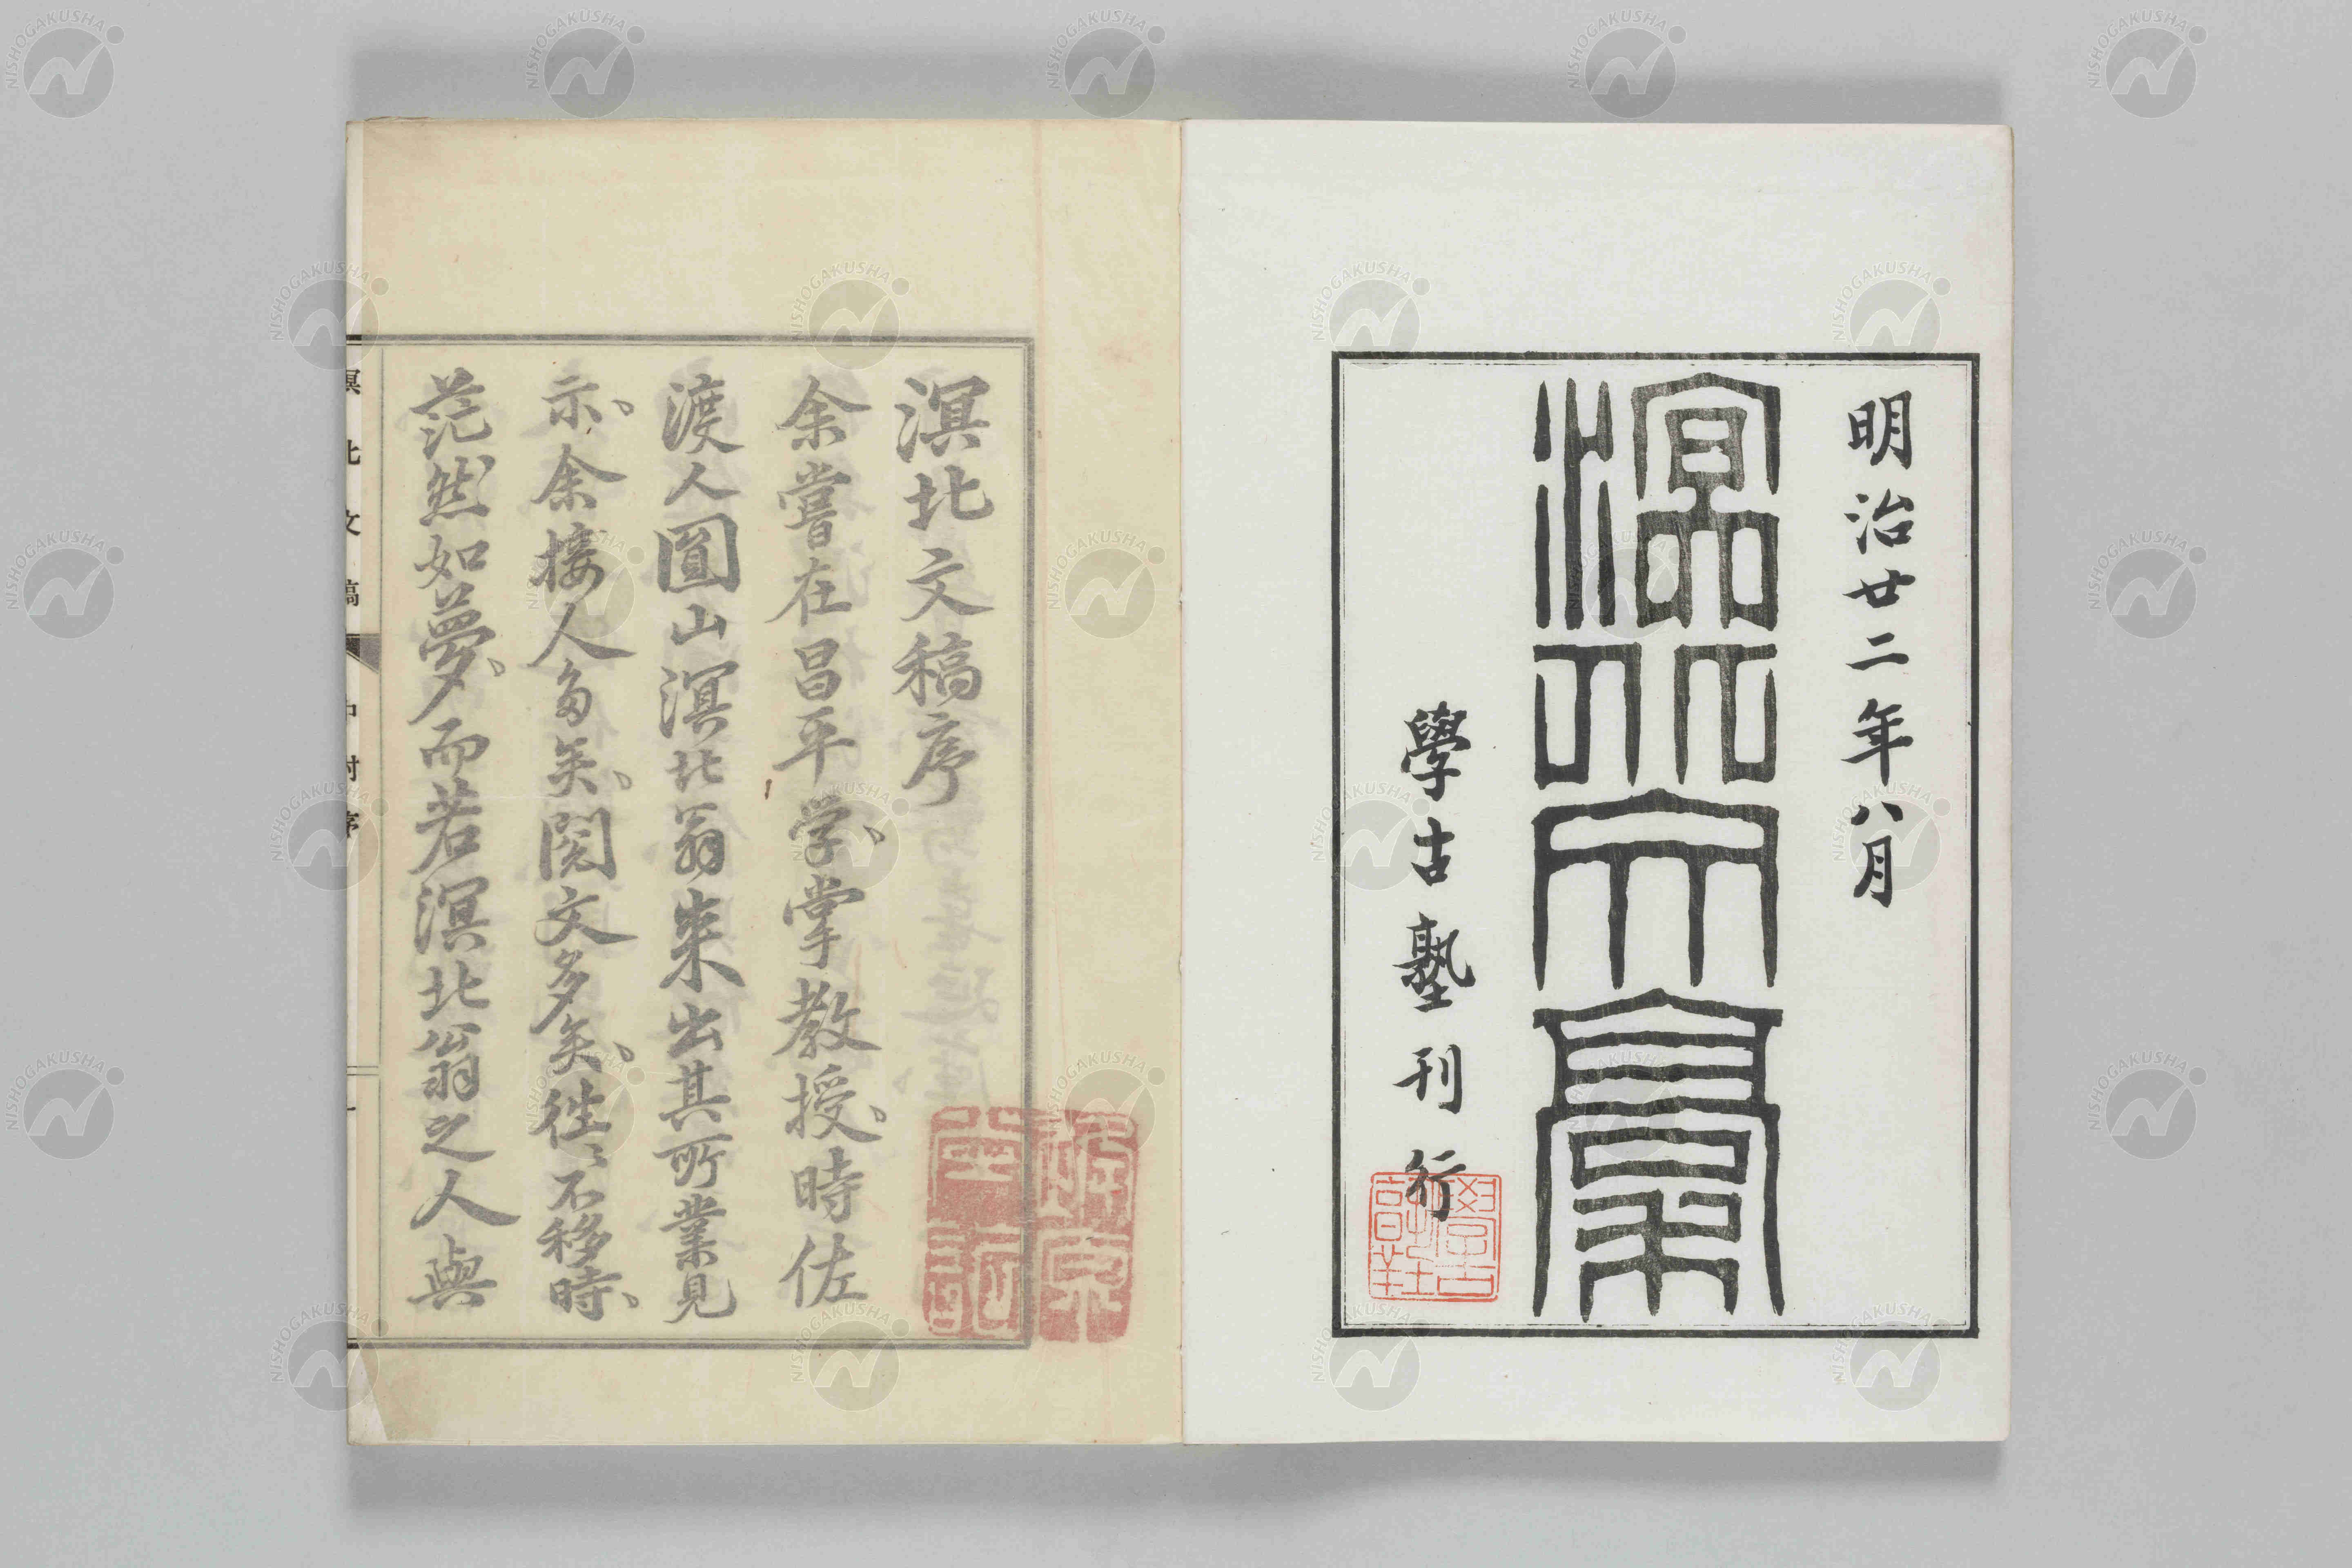 明治廿二年八月
溟北文稾
學古塾刊行
溟北文稿序
余嘗在昌平学、掌教授、時佐
渡人圓山溟北翁来出其所業見
示、余接人多矣、閲文多矣、往〻不移時、
茫然如夢、而若溟北翁之人與
溟北文稿
NISHOGAKUSHA